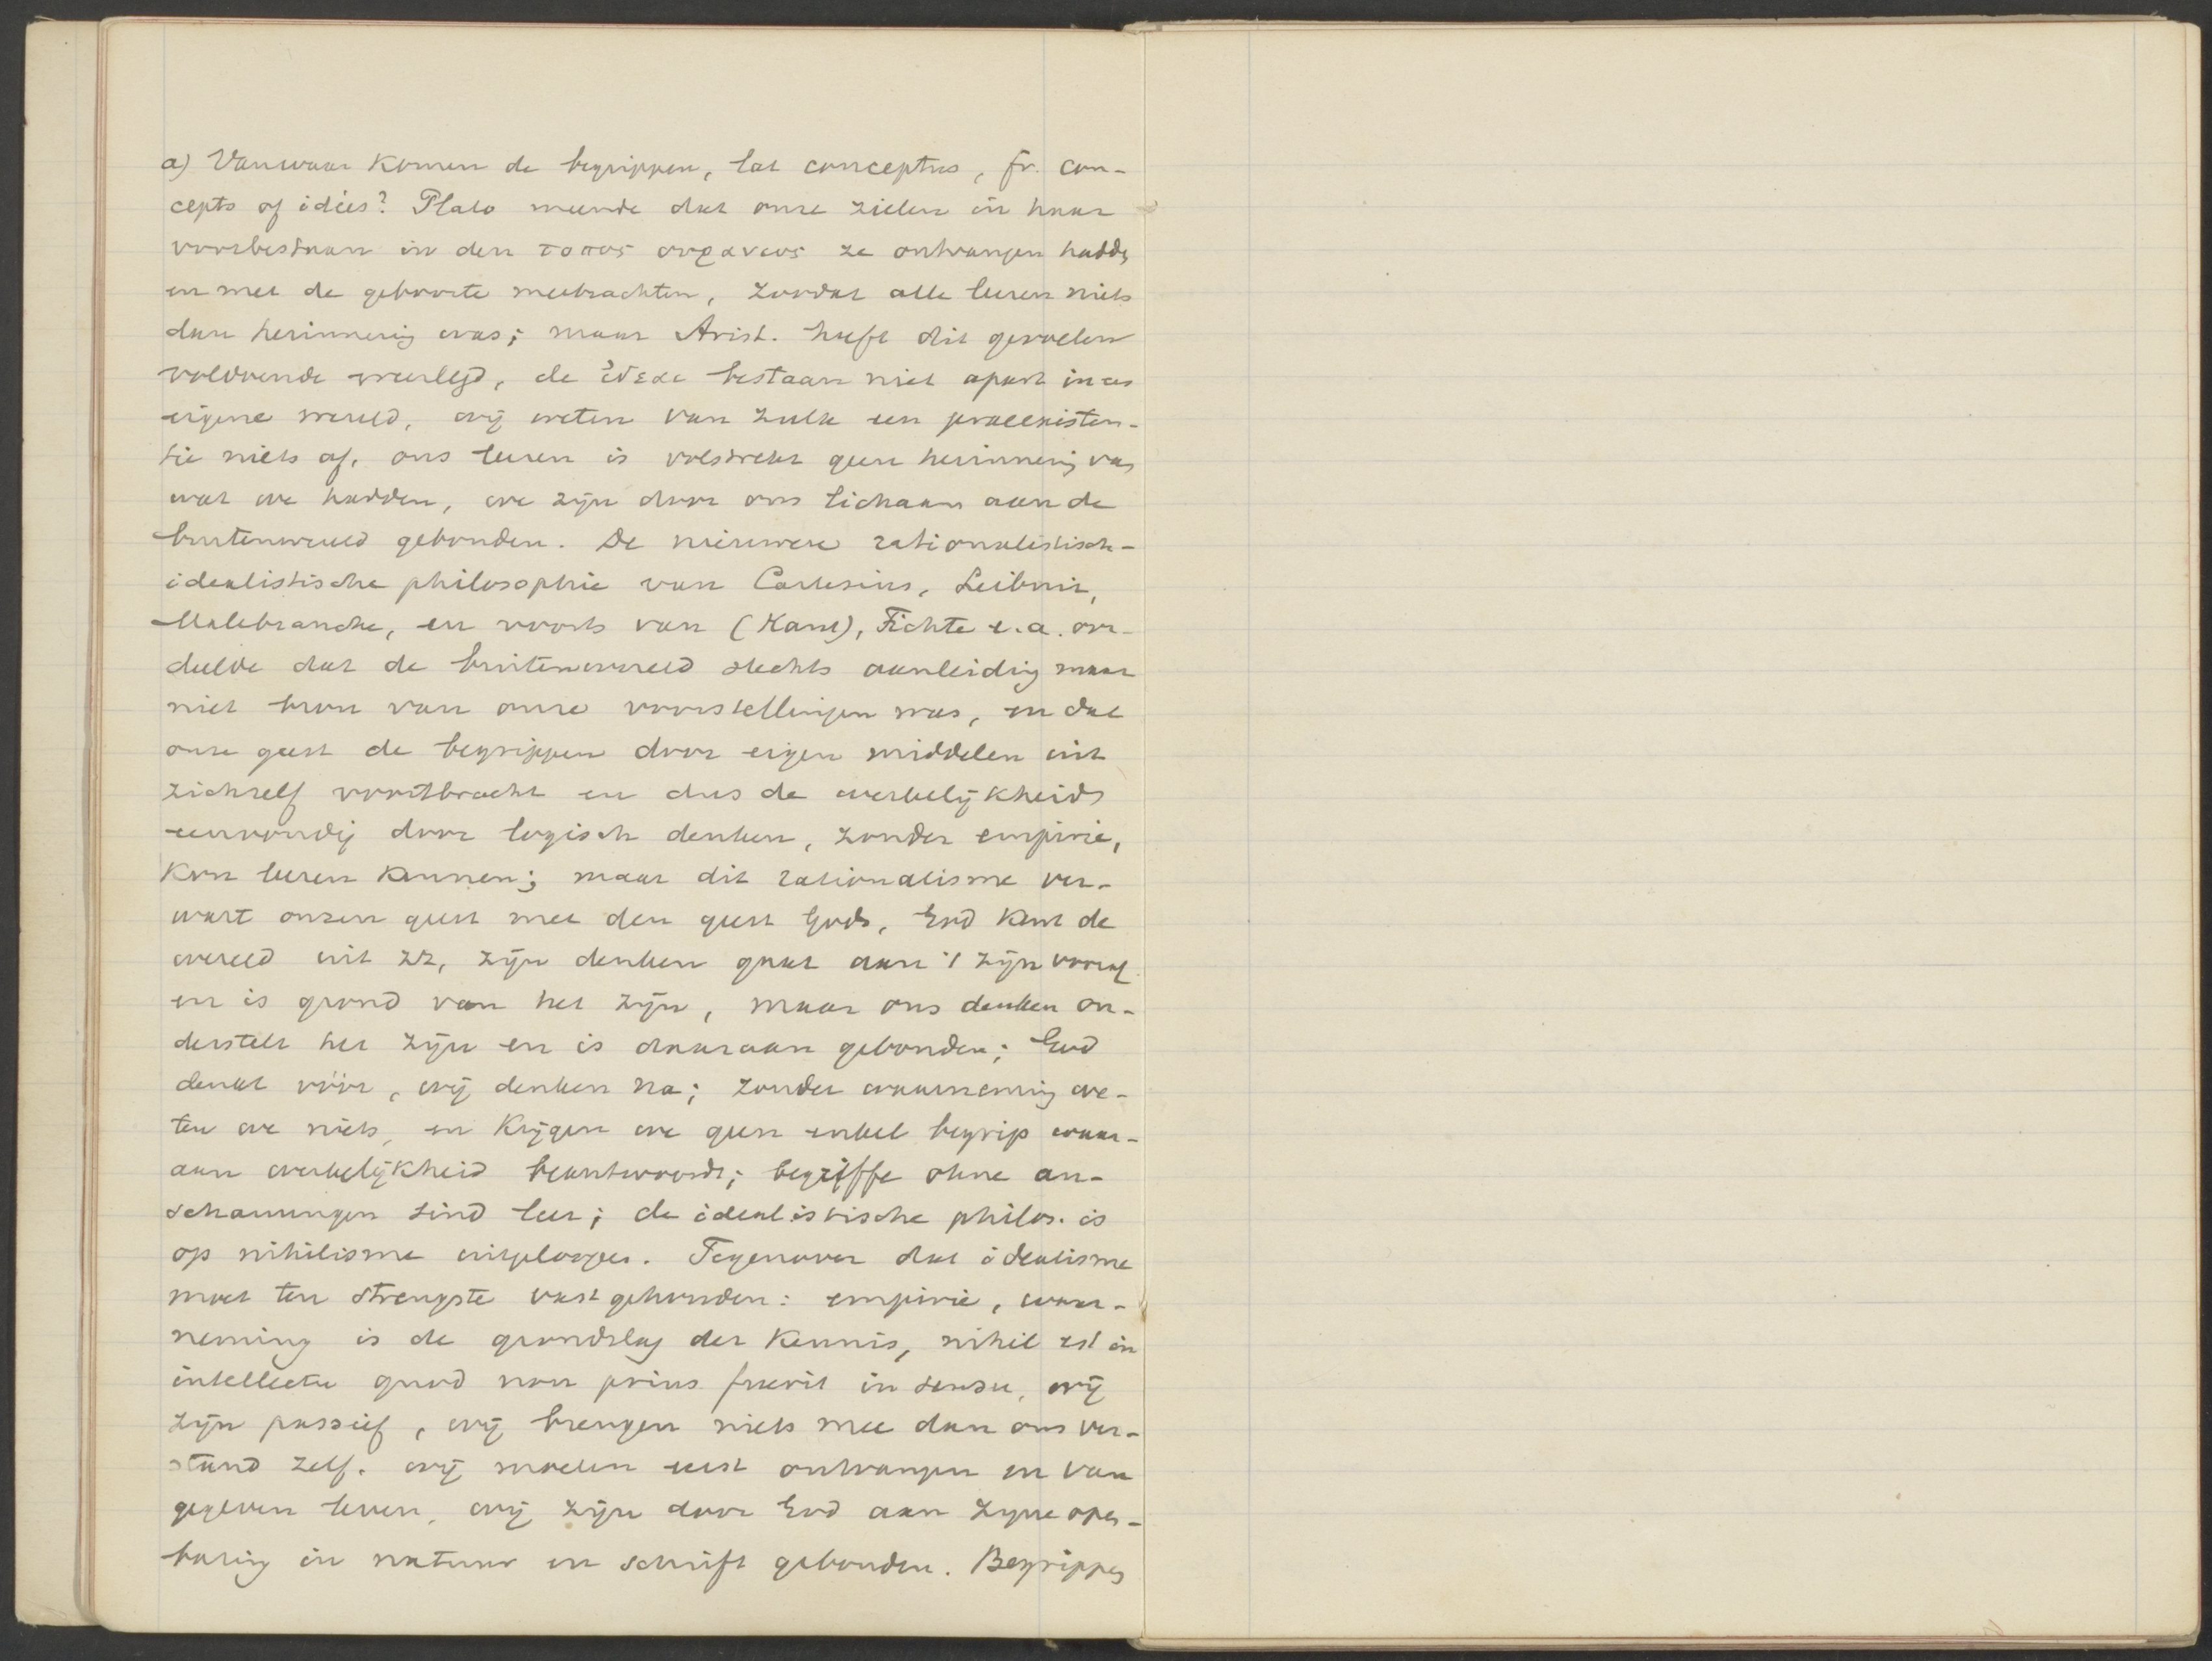 a) Vanwaar komen de begrippen, lat conceptus, fr. con-
cepts of idées? Plato meende dat onze zielen in haar
voorbestaan in den τοπος ουρανιος ze ontvangen hadden
en met de geboorte meebrachten, zoodat alle leeren niets
dan herinnering was; maar Arist. heeft dit gevoelen
voldoende weerlegd, de ἰδεαι bestaan niet apart in een
eigene wereld, wij weten van zulk een praeexisten-
tie niets af, ons leeren is volstrekt geen herinnering van
wat we hadden, we zijn door ons lichaam aan de
buitenwereld gebonden. De nieuwere rationalistisch-
idealistische philosophie van Cartesius, Leibniz,
Malebranche, en voorts van (Kant), Fichte e.a. oor-
deelde dat de buitenwereld slechts aanleiding maar
niet bron van onze voorstellingen was, en dat
onze geest de begrippen door eigen middelen uit
zichzelf voortbracht en dus de werkelijkheid
eenvoudig door logisch denken, zonder empirie,
kon leeren kennen; maar dit rationalisme ver-
wart onzen geest met den geest Gods, God kent de
wereld uit zz, zijn denken gaat aan 't zijn vooraf
en is grond van het zijn, maar ons denken on-
derstelt het zijn en is daaraan gebonden; God
denkt vóór, wij denken na; zonder waarneming we-
ten we niets, en krijgen we geen enkel begrip waar-
aan werkelijkheid beantwoordt; begriffe ohne an-
schauungen sind leer; de idealistische philos. is
op nihilisme uitgeloopen. Tegenover dat idealisme
moet ten strengste vast gehouden: empirie, waar-
neming is de grondslag der kennis, nihil est in
intellectu quod non prius fuerit in sensu, wij
zijn passief, wij brengen niets mee dan ons ver-
stand zelf. wij moeten eerst ontvangen en van
gegeven leven, wij zijn door God aan zijne open-
baring in natuur en schrift gebonden. Begrippen